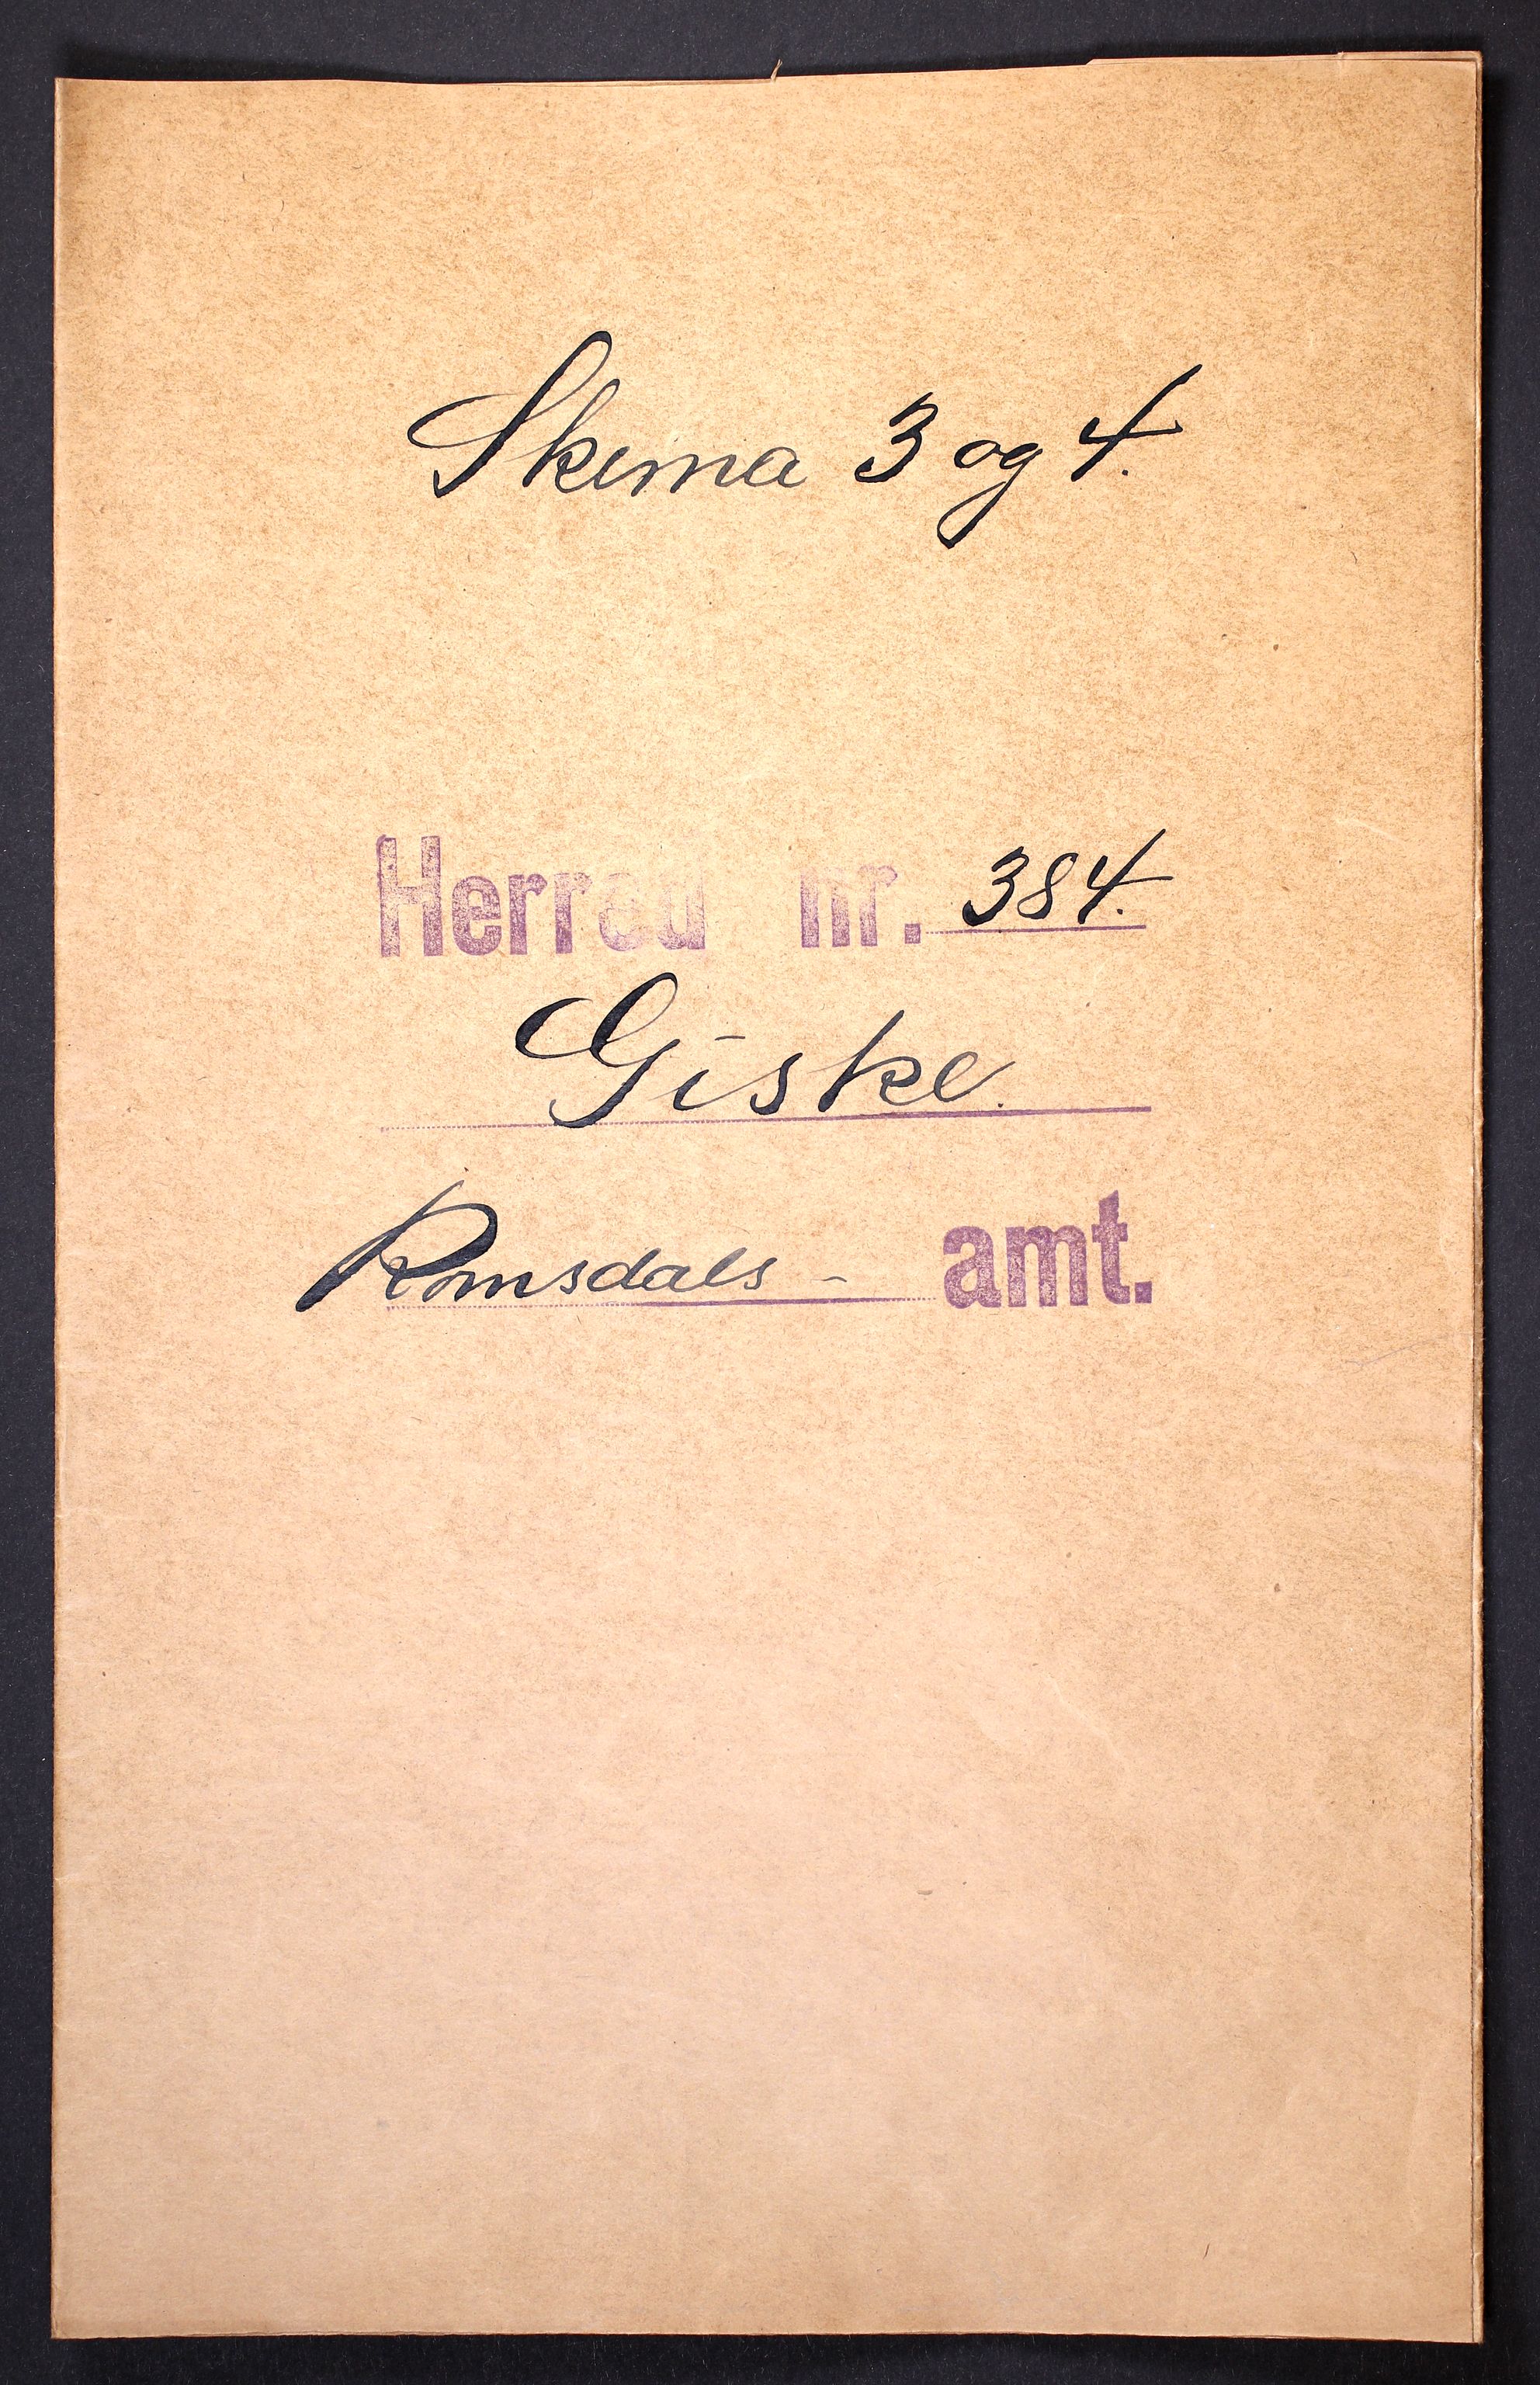 Skema 3 og 4.
Herred nr. 384.
Giske.
Romsdals - amt.